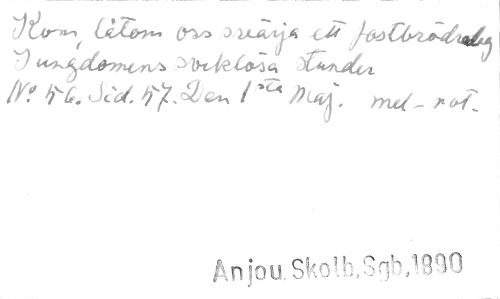 Kom, låtom oss svärja ett fostbrödralag
I ungdomens sveklösa stunder
No 56. Sid. 57. Den 1sta Maj. mel-not.
Anjou, Skolb, Sgb, 1890